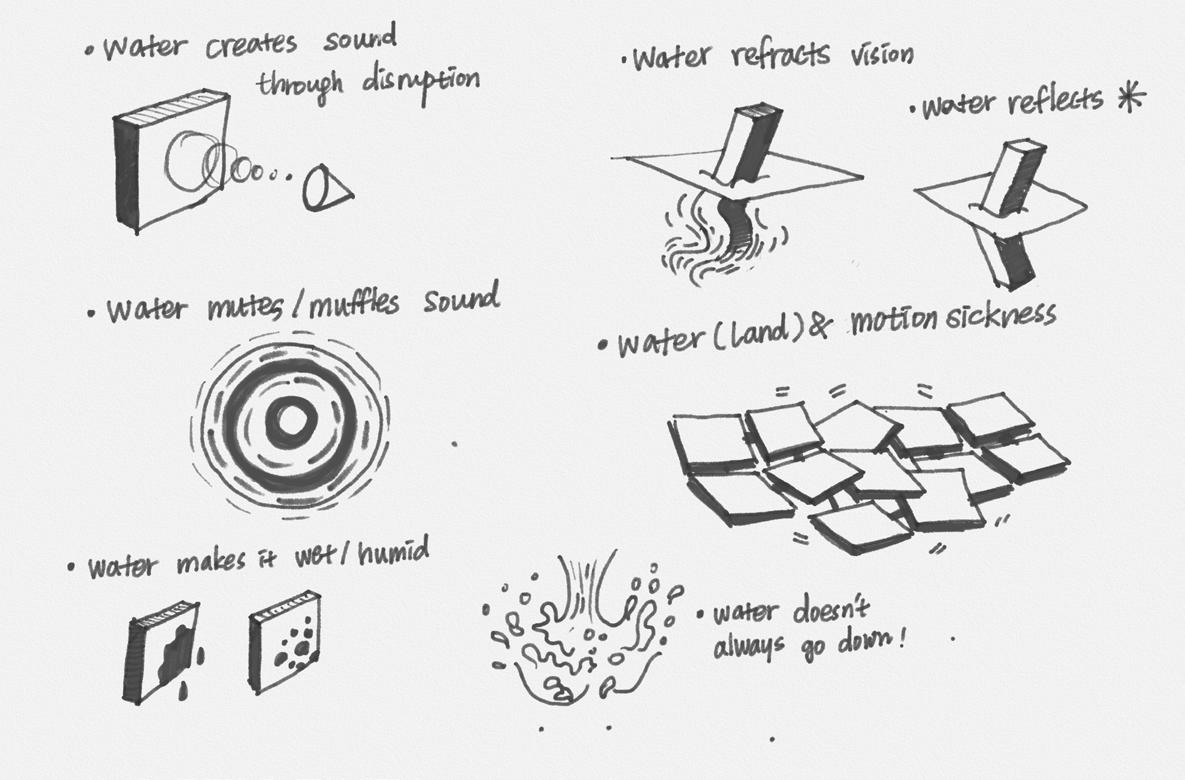 • Water creates sound
through disruption
• Water refracts vision
• Water reflects *
• Water mutes/muffles sound
• Water (land) & motion sickness
• Water makes it wet/humid
• Water doesn't
always go down!